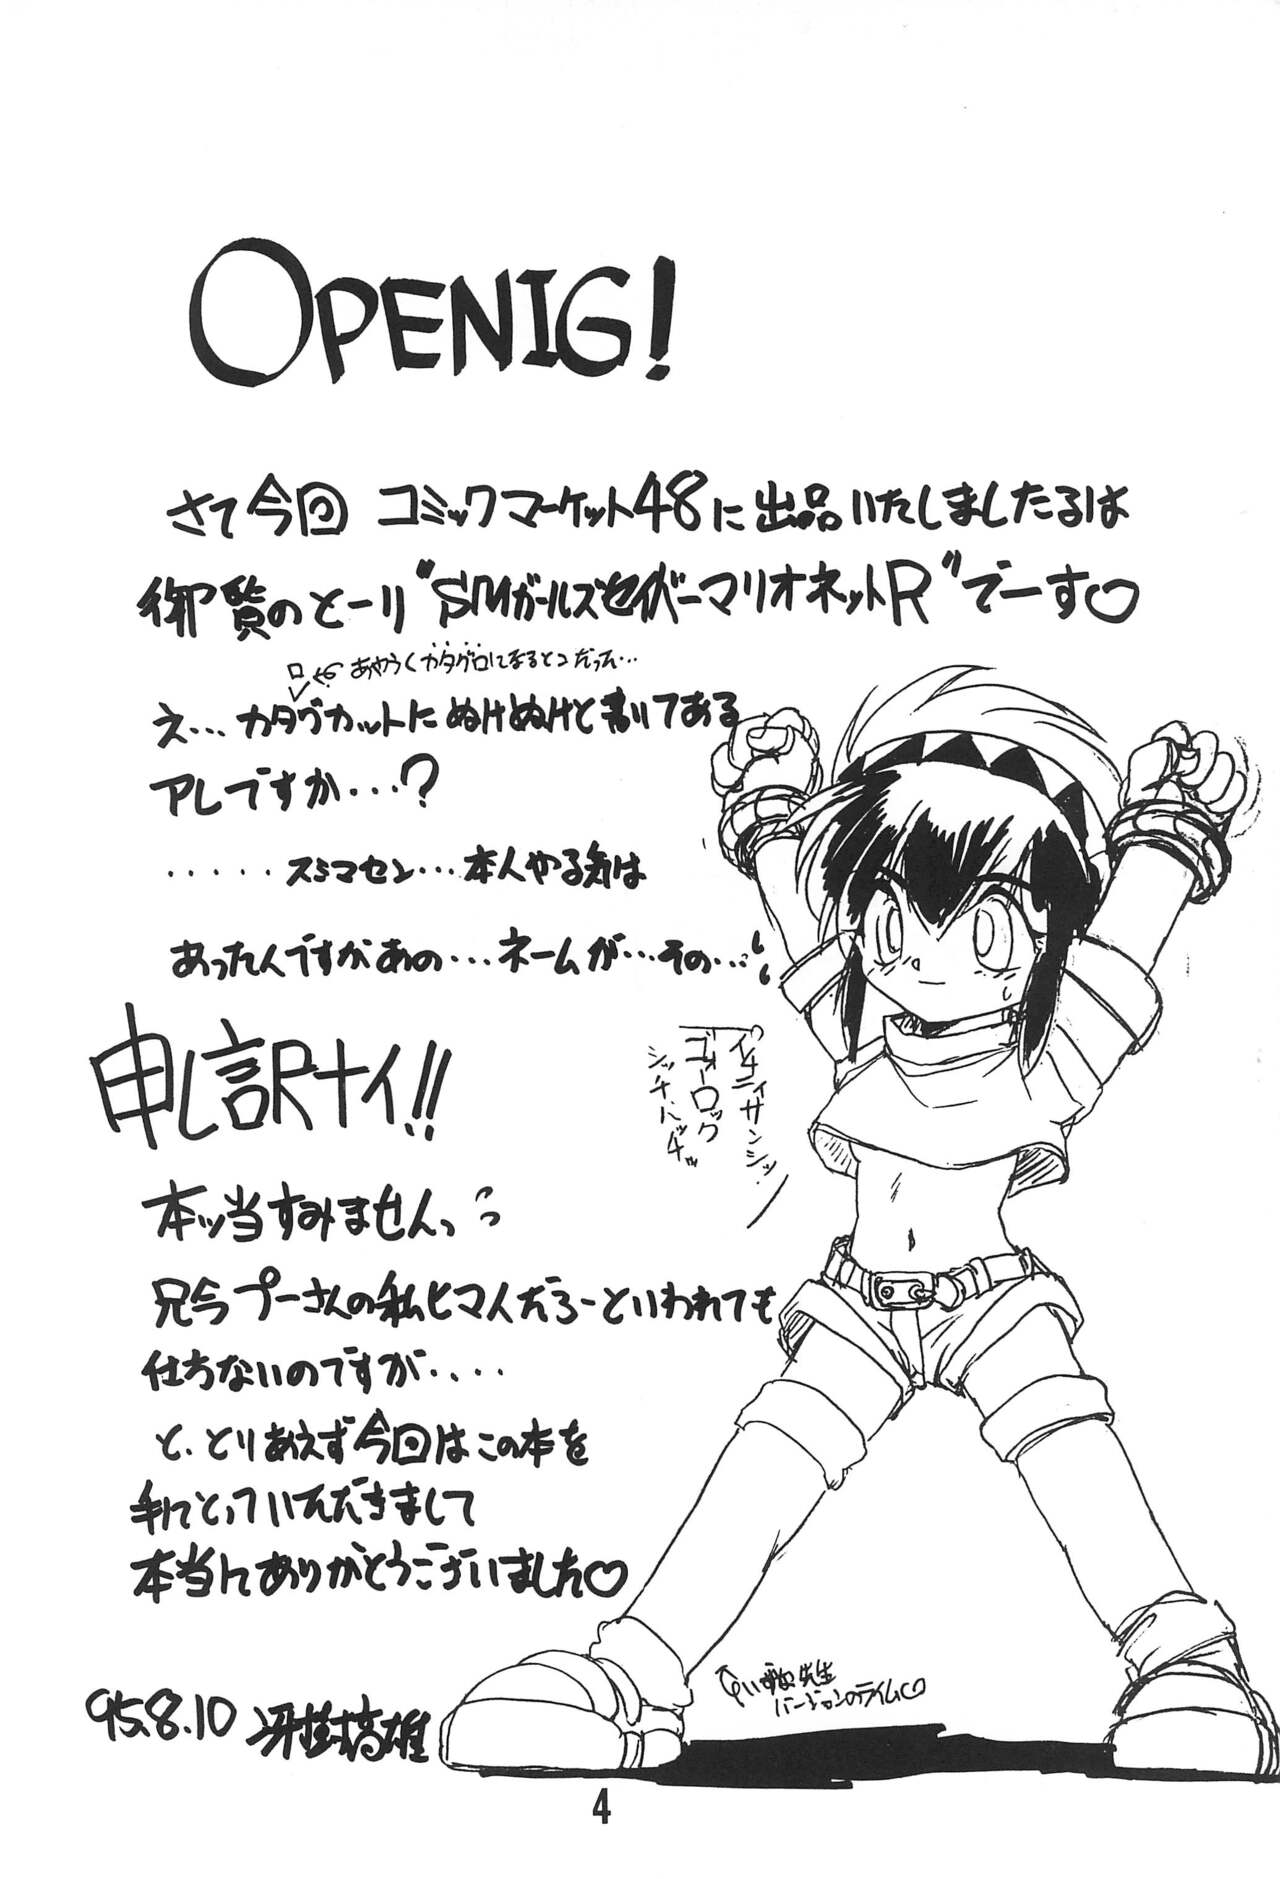 OPENIG!
さて今回 コミックマーケット48に出品いたしましたるは
御覧のとーり"SMガールズセイバーマリオネットR"でーす♡
ロ ← あやうくカタグロになるとこだった…
え… カタグカットにぬけぬけと書いてある
アレですか…?
・・・・・スミマセン…本人やる気は
あったんですかあの…ネームが…その…
申し訳ナイ!!
本ッ当すみませんっっ
兄今プーさんの私ヒマ人だろーといわれても
仕方ないのですが・・・・
と、とりあえず今回はこの本を
手にとっていただきまして
本当にありがとうございました♡
イチニィサンシッ
ゴーロック
シッチハッチッ
先生
バージョンのライム♡
95.8.10 冴樹高雄
4